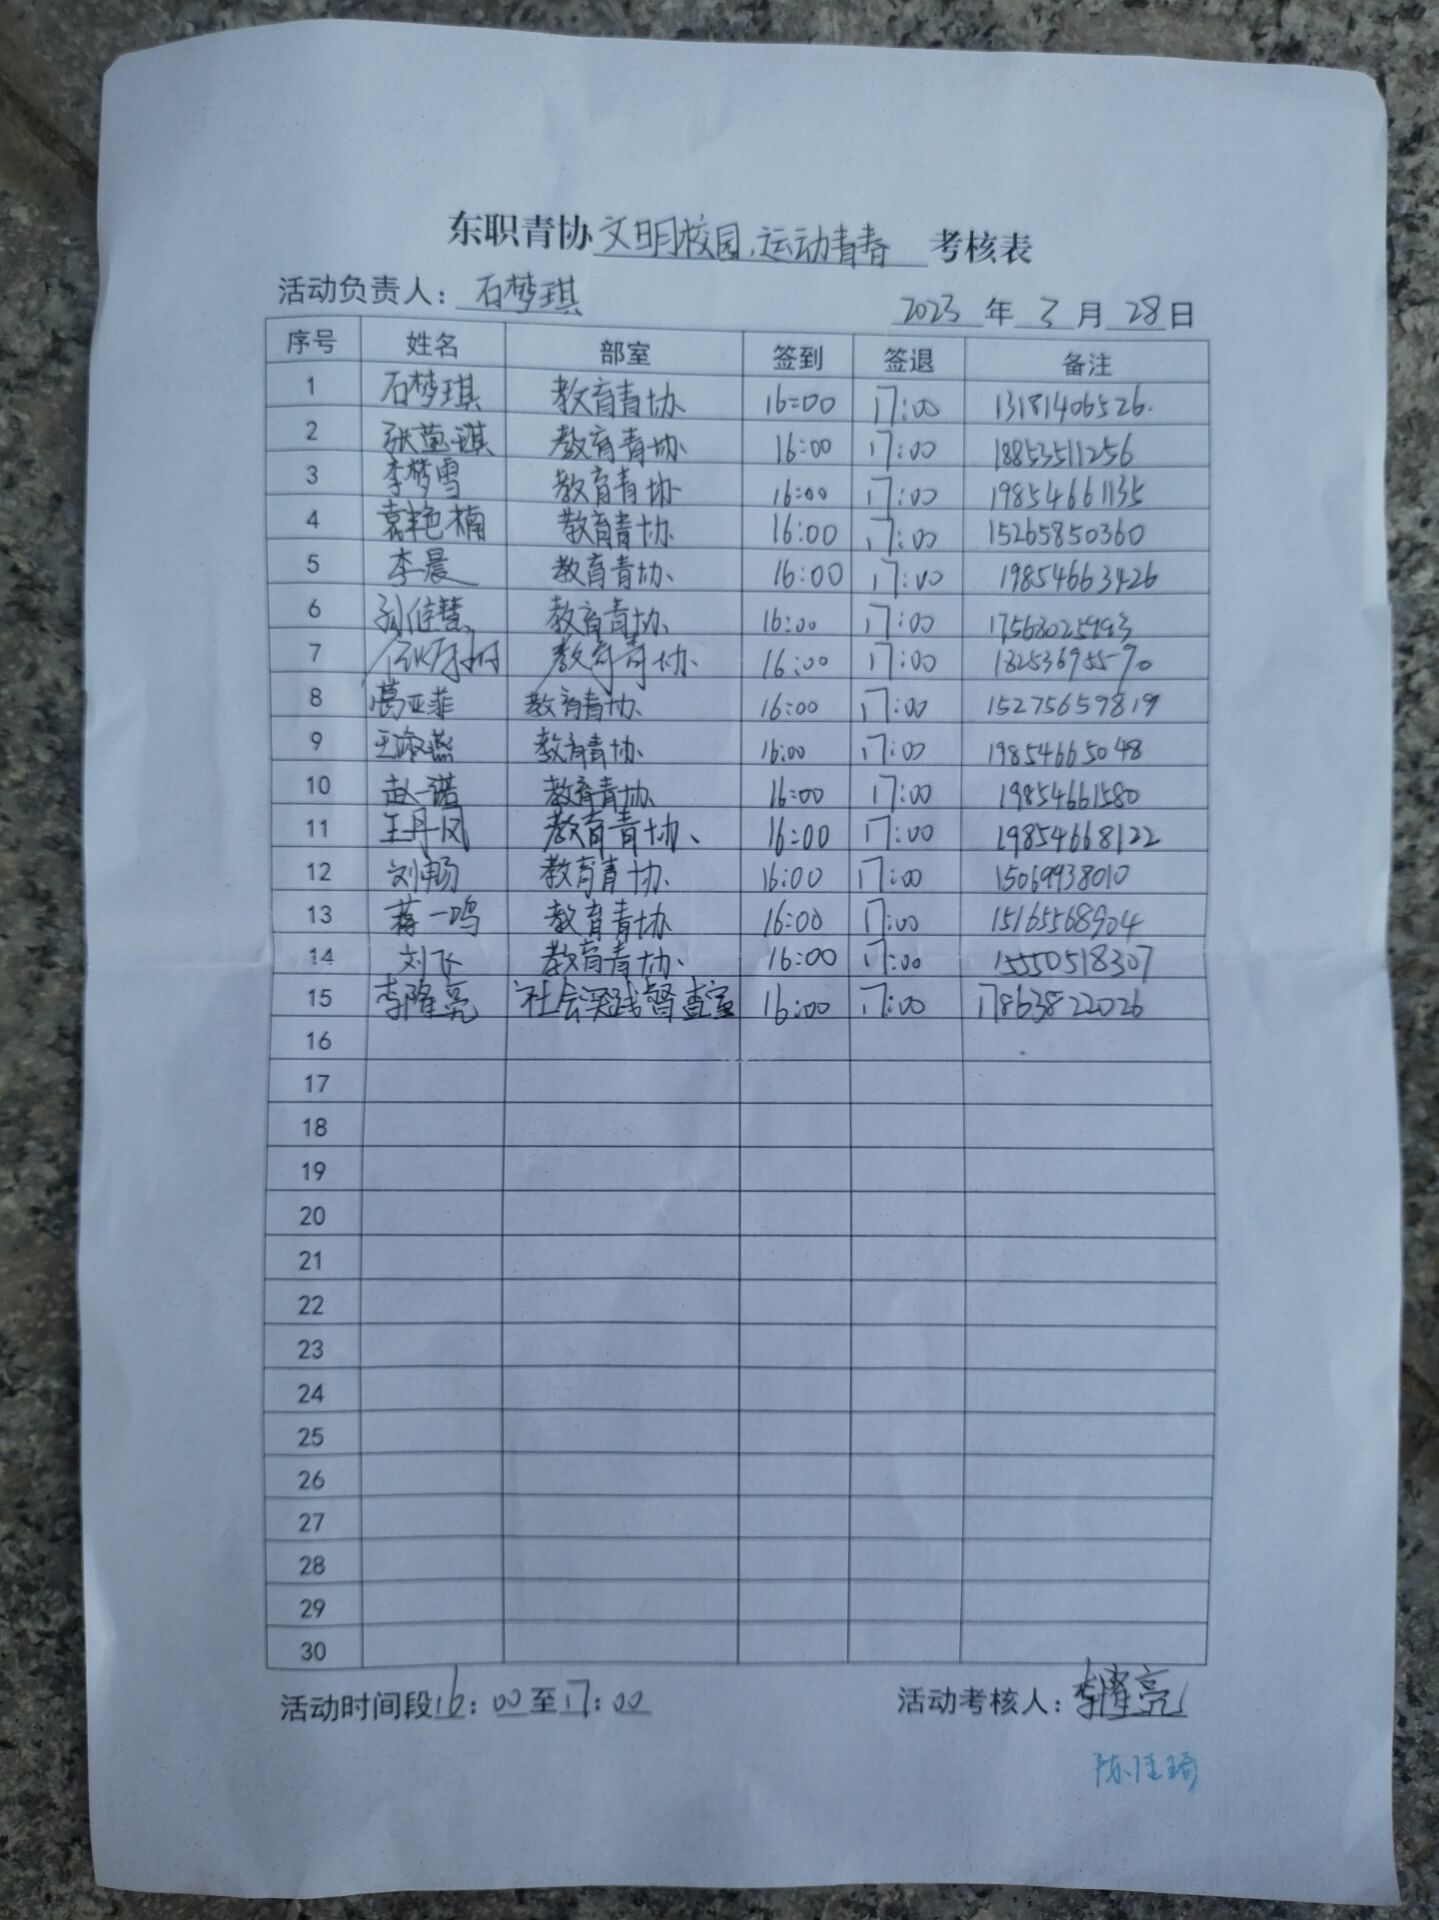 东职青协 文明校园,运动青春 考核表
活动负责人: 石梦琪 2023 年 3 月 28 日
序号 姓名 部室 签到 签退 备注
1 石梦琪 教育青协 16:00 17:00 13181406526.
2 张萱琪 教育青协 16:00 17:00 18853511256
3 李梦雪 教育青协 16:00 17:00 19854661135
4 袁艳楠 教育青协 16:00 17:00 15265850360
5 李晨 教育青协 16:00 17:00 19854663426
6 孙佳慧 教育青协 16:00 17:00 17563025993
7 教育青协 16:00 17:00 18253695570
8 葛亚菲 教育青协 16:00 17:00 15275659819
9 王淑燕 教育青协 16:00 17:00 19854665048
10 赵一诺 教育青协 16:00 17:00 19854661580
11 王丹凤 教育青协、 16:00 17:00 19854668122
12 刘畅 教育青协 16:00 17:00 15069938010
13 蒋一鸣 教育青协 16:00 17:00 15165568904
14 刘飞 教育青协 16:00 17:00 15550518307
15 李隆亮 社会实践督查室 16:00 17:00 17863822026
16
17
18
19
20
21
22
23
24
25
26
27
28
29
30
活动时间段 16:00 至 17:00 活动考核人: 李隆亮
陈佳琦